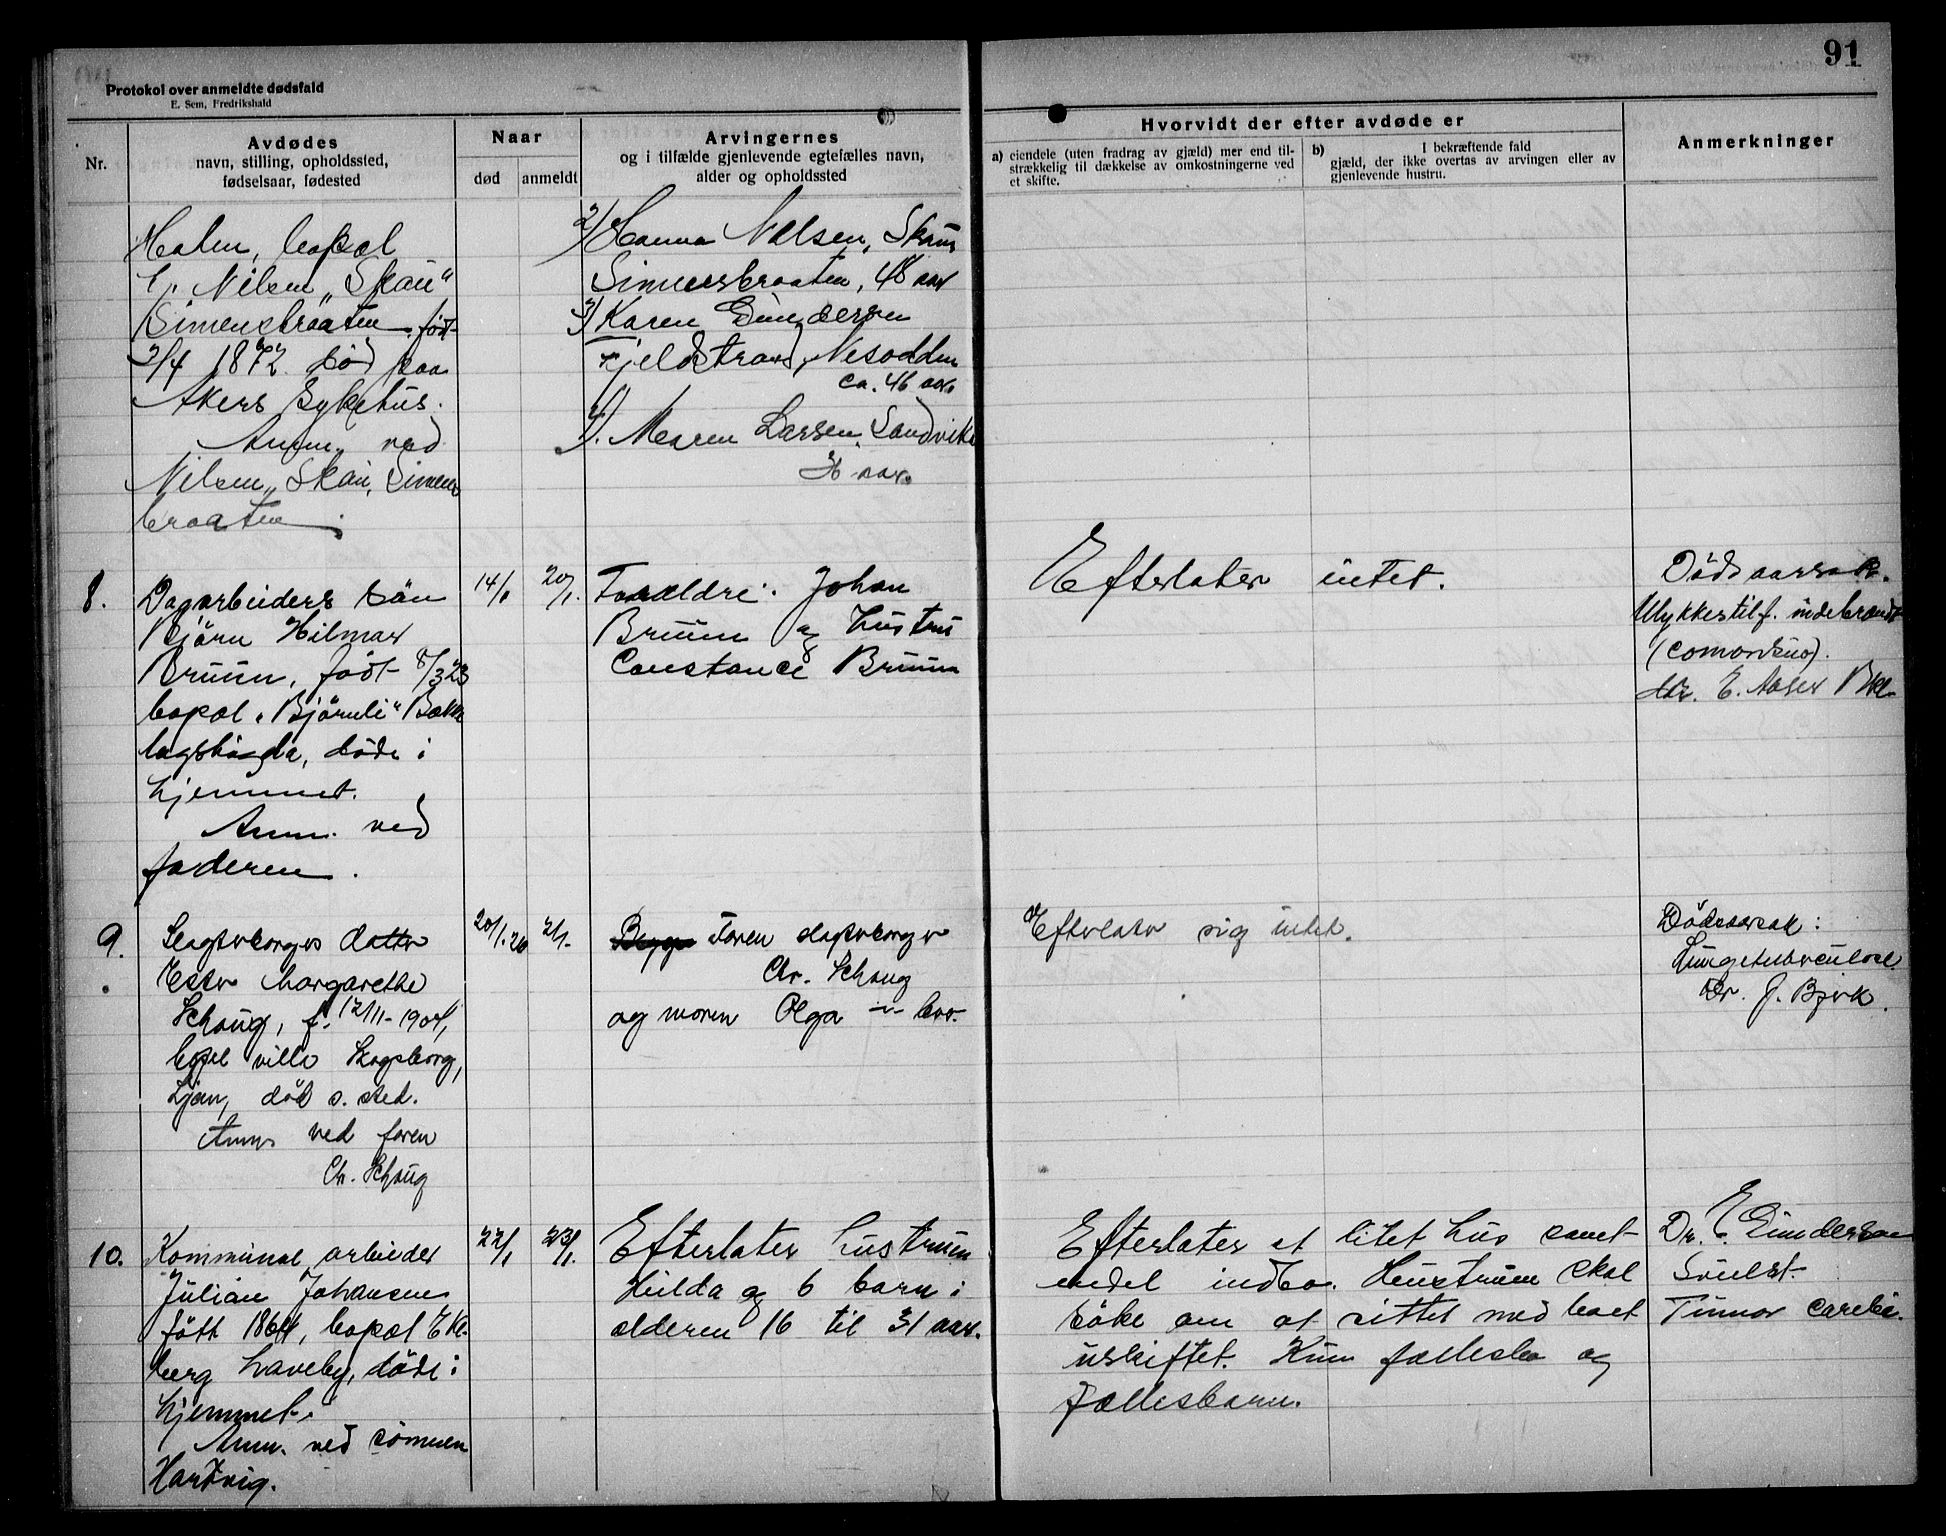 91
Protokol over anmeldte dødsfald
E. Sem, Fredrikshald
Nr.
Avdødes
navn, stilling, opholdssted,
fødselsaar, fødested
Naar
død
anmeldt
Arvingernes
og i tilfælde gjenlevende egtefælles navn,
alder og opholdssted
Hvorvidt der efter avdøde er
a) eiendele (uten fradrag av gjæld) mer end til-
strækkelig til dækkelse av omkostningerne ved
et skifte.
b) I bekræftende fald
gjæld, der ikke overtas av arvingen eller av
gjenlevende hustru.
Anmerkninger
Holm, bopæl
Nilsen "Skau"
Simensbraaten, født
2/4 1872. død paa
Akers Sykehus.
Anm. ved
Nilsen, Skau, Simens
braaten.
2/ Hanna Nielsen, Skau
Simensbraaten, 48 aar
3/ Karen Gundersen
Fjeldstrand, Nesodden
ca. 46 aar
4/. Maren Larsen, Sandvika
36 aar.
8.
Dagarbeiders sön
Björn Hilmar
Bruun, født 8/3 23
bopæl "Björneli" Bække
lagshögda, døde i
hjemmet.
Anm. ved
faderen.
14/1
20/1.
Forældre: Johan
Bruun og hustru
Constance Bruun
Efterlater intet.
Dödsaarsak.
Ulykkestilf. indebrændt
(comandua).
dr. E. Aaser Bkl.
9.
Slagterborgers datter
Ester Margarethe
Schaug, f. 12/11-1904,
bopæl villa Skogsborg,
Ljan, död s. sted.
Anm. ved faren
Chr. Schaug
20/1.26
21/1.
Begge Faren slagterborger
Chr. Schaug
og moren Olga -"- bor.
Efterlater sig intet.
Dödsaarsak:
Lungetuberculose.
Dr. J. Bjerk.
10.
Kommunal arbeider
Julian Johansen
født 1864, bopæl Eke-
berg haveby, døde i
hjemmet.
Anm. ved sønnen
Hartvig.
22/1
23/1.
Efterlater hustruen
Hulda og 6 barn i
alderen 16 til 31 aar.
Efterlater et litet hus samt
endel indbo. Hustruen skal
søke om at sittet med boet
uskiftet. Kun fællesbo og
fællesbarn.
Dr. E. Gundersen
Svulst.
Tumor cerebri.